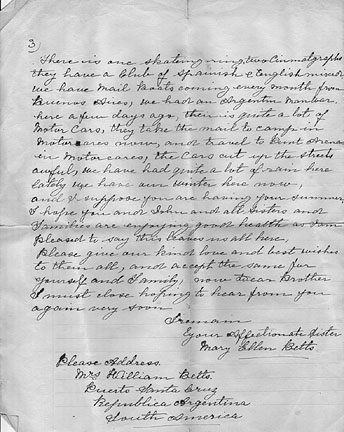 3)
There is one skateing ring, two Cinmatographs
they have a Club of Spanish & English mixed
we have Mail Boats coming every month from
Buenos Aires, we had an Argentine Man war
here a few days ago, their is quite a lot of
Motor Cars, they take the mail to camp in
Motor cares now, and travel to Punt Arenas
in Motor cares, the Cars cut up the streets
awful, we have had quite a lot of rain here
lately we have our winter here now,
and I suppose you are having your summer
I hope you and John and all Sisters and
Families are enjoying good health as I am
Pleased to say this leaves us all here,
Please give our kind love and best wishes
to them all, and accept the same for
yourself and Family, now Dear Brother
I must close hoping to hear from you
again very soon
I remain
your Affectionate Sister
Mary Ellen Betts
Please Address
Mrs William Betts
Puerto Santa Cruz
Republica Argentina
South America